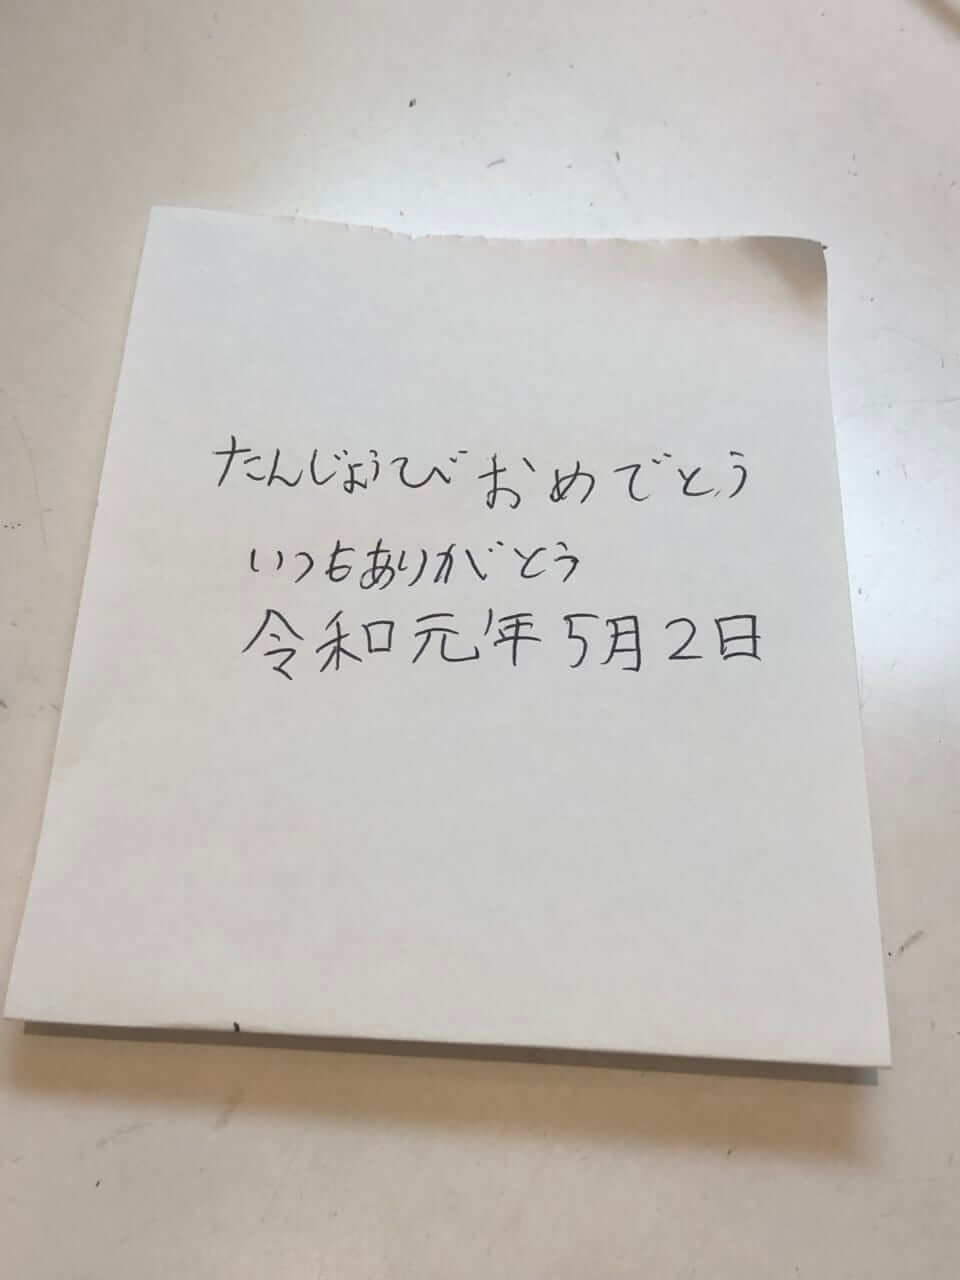 たんじょうび おめでとう
いつもありがとう
令和元年5月2日